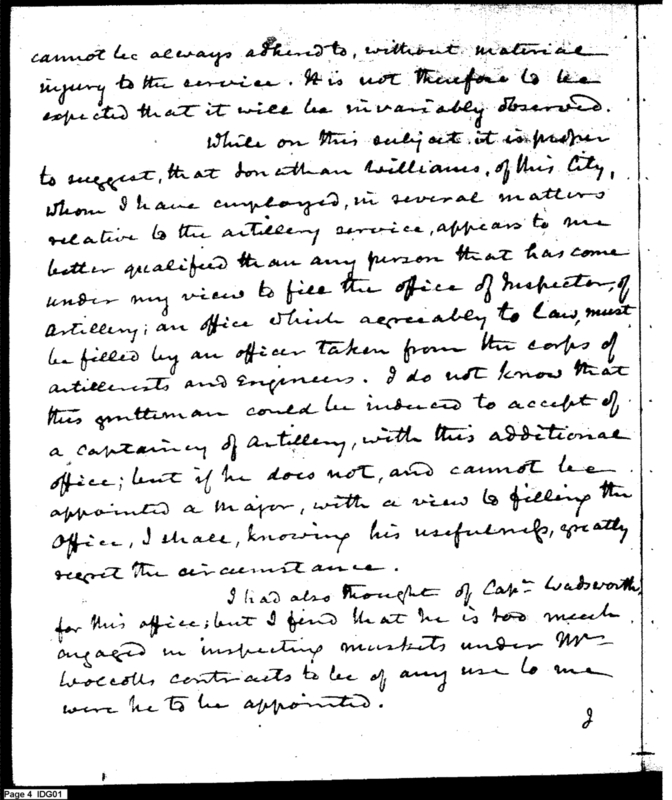 cannot be always adhered to, without material
injury to the service. It is not therefore to be
expected that it will be invariably observed.
While on this subject it is proper
to suggest, that Jonathan Williams, of this City,
whom I have employed, in several matters
relative to the artillery service, appears to me
better qualified than any person that has come
under my view to fill the office of Inspector, of
Artillery; an office which agreeably to Law, must
be filled by an officer taken from the corps of
artillerists and Engineers. I do not know that
this gentleman could be induced to accept of
a captaincy of Artillery, with this additional
office; but if he does not, and cannot be
appointed a Major, with a view to filling the
Office, I shall, knowing his usefulness, greatly
regret the circumstance.
I had also thought of Capn Wadsworth,
for this office; but I find that he is too much
engaged in inspecting muskets under Mr
Wolcotts contracts to be of any use to me
were he to be appointed.
I
Page 4 IDG01